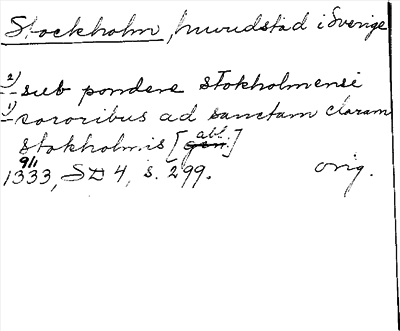 Stockholm, huvudstad i Sverige
2) - sub pondere stokholmensi
1) - sororibus ad sanctam claram
stokholmis [gen. abl.]
9/1
1333, SD 4, s. 299. orig.